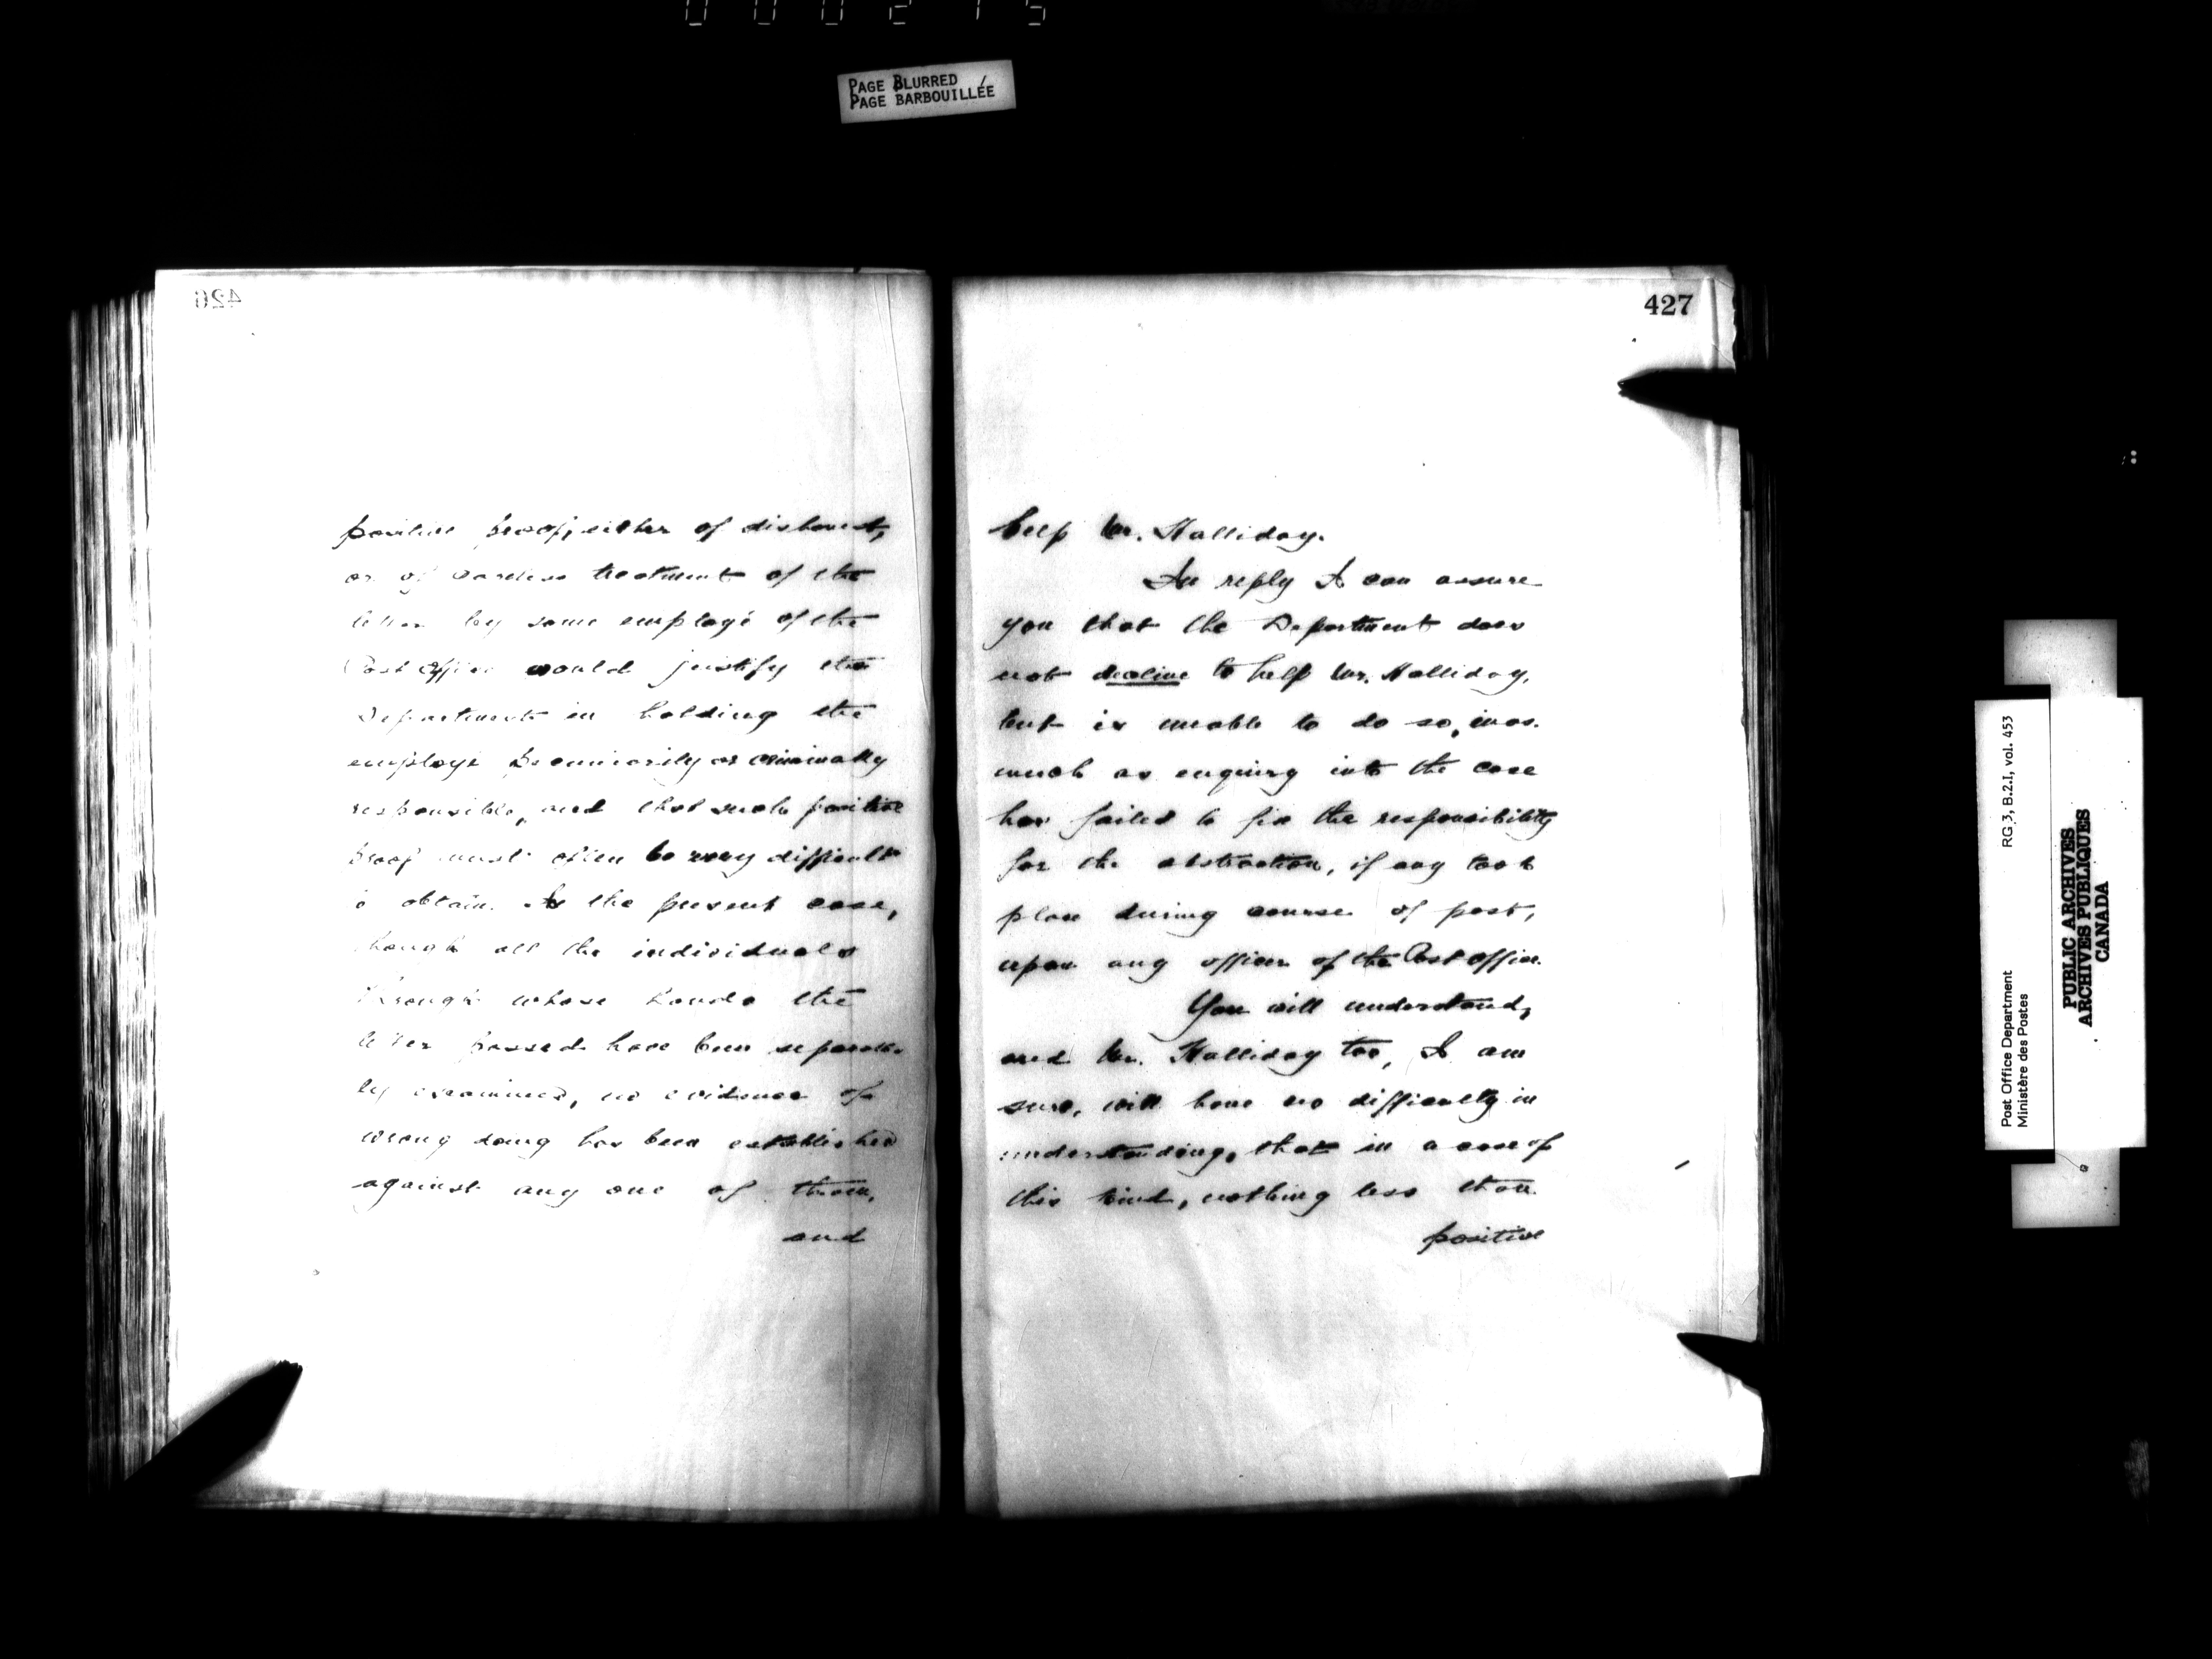 000215
PAGE BLURRED
PAGE BARBOUILLÉE
426
positive proof, either of dishonest,
or of careless treatment of the
letter by some employé of the
Post Office would justify the
Department in holding the
employé pecuniarily or criminally
responsible, and that such positive
proof must often be very difficult
to obtain. In the present case,
though all the individuals
through whose hands the
letter passed have been separate-
ly examined, no evidence of
wrong doing has been established
against any one of them,
and
427
help Mr. Halliday.
In reply I can assure
you that the Department does
not decline to help Mr. Halliday,
but is unable to do so, inas-
much as enquiry into the case
has failed to fix the responsibility
for the abstraction, if any took
place during course of post,
upon any officer of the Post Office.
You will understand,
and Mr. Halliday too, I am
sure, will have no difficulty in
understanding, that in a case of
this kind, nothing less than
positive
Post Office Department
Ministère des Postes
RG 3, B.2.I, vol. 453
PUBLIC ARCHIVES
ARCHIVES PUBLIQUES
CANADA